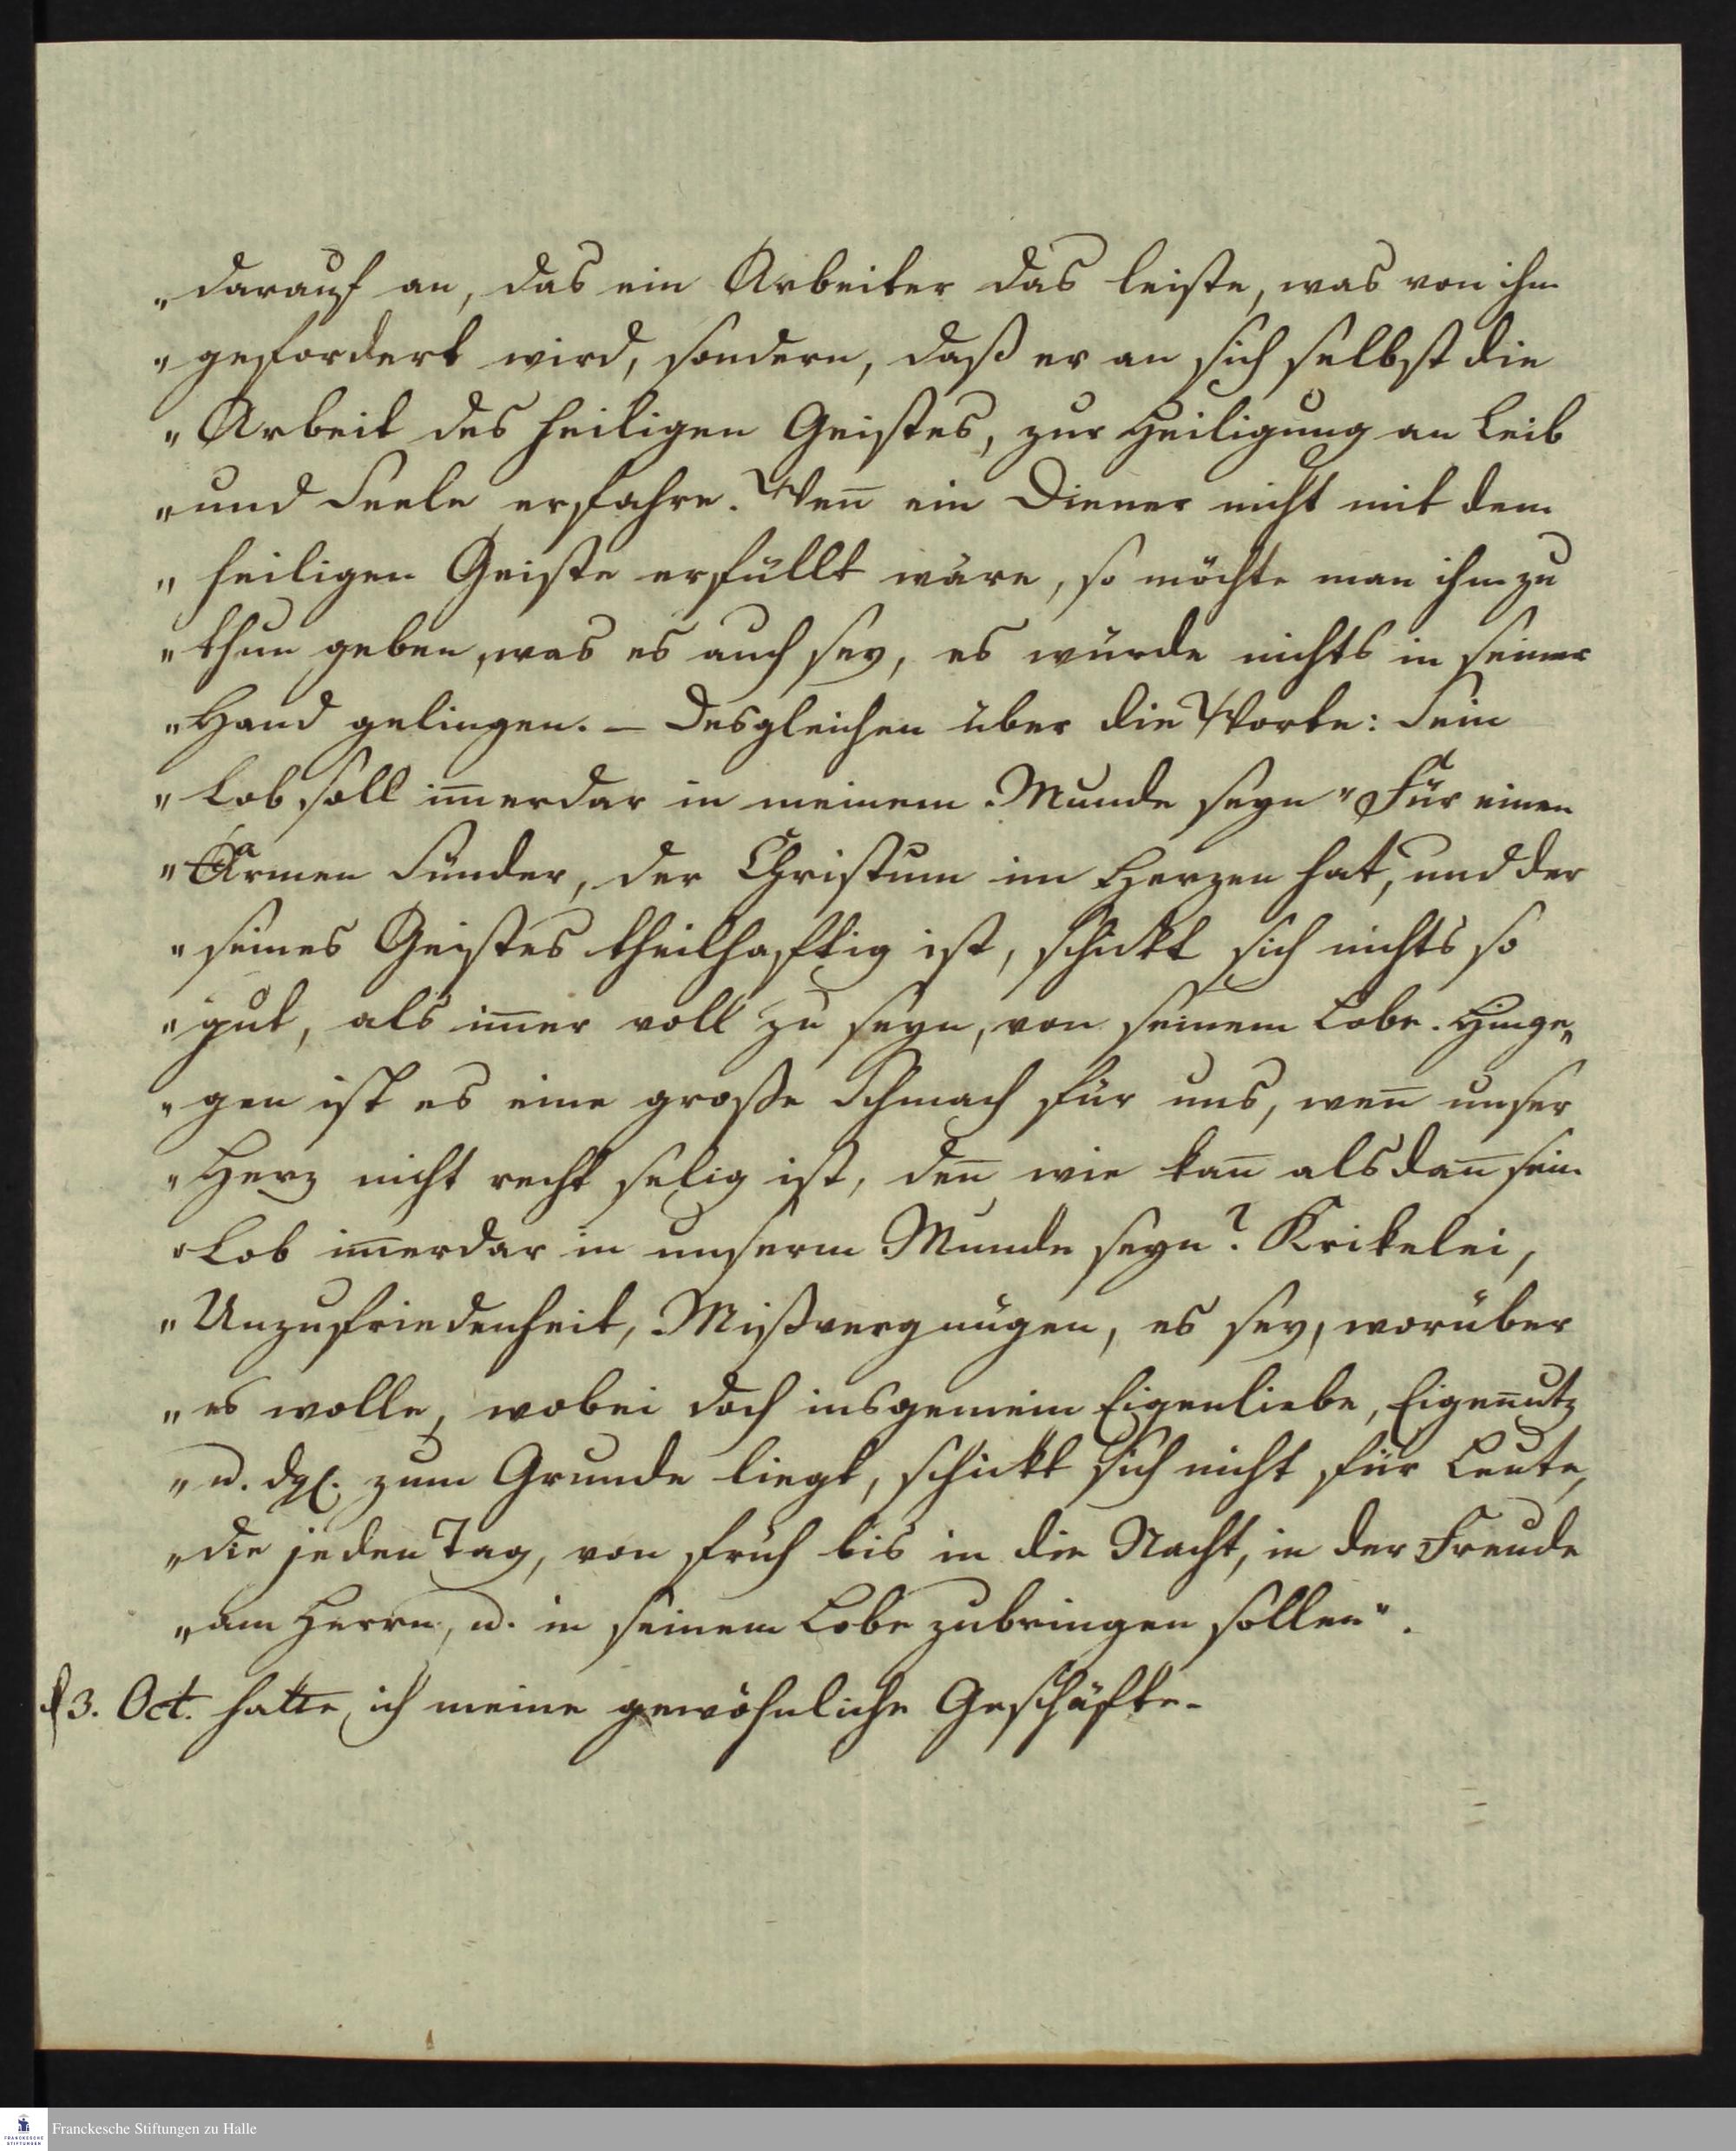 „darauf an, das ein Arbeiter das leiste, was von ihm
„gefordert wird, sondern, daß er an sich selbst die
„Arbeit des heiligen Geistes, zur Heiligung an Leib
„und Seele erfahre. Wen̄ ein Diener nicht mit dem
„heiligen Geiste erfüllt wäre, so möchte man ihm zu
„thun geben, was es auch sey, es würde nichts in seiner
„Hand gelingen. – Desgleichen über die Worte: Sein
„Lob soll im̄erdar in meinem Munde seyn „Für einen
„armen Sünder, der Christum im Herzen hat, und der
„seines Geistes theilhaftig ist, schickt sich nichts so
„gut, als im̄er voll zu seyn, von seinem Lobe. Hinge„
„gen ist es eine große Schmach für uns, wen̄ unser
„Herz nicht recht selig ist, den̄ wie kan̄ alsdan̄ sein
„Lob im̄erdar in unserm Munde seyn? Krikelei,
„Unzufriedenheit, Mißvergnügen, es sey, worüber
„es wolle, wobei doch insgemein Eigenliebe, Eigen̄utz
„u. dgl. zum Grunde liegt, schickt sich nicht für Leute,
„die jeden Tag, von früh bis in die Nacht, in der Freude
„am Herrn, u. in seinem Lobe zubringen sollen“.
d 3. Oct. hatte ich meine gewöhnliche Geschäfte.
Franckesche Stiftungen zu Halle
FRANCKESCHE
STIFTUNGEN